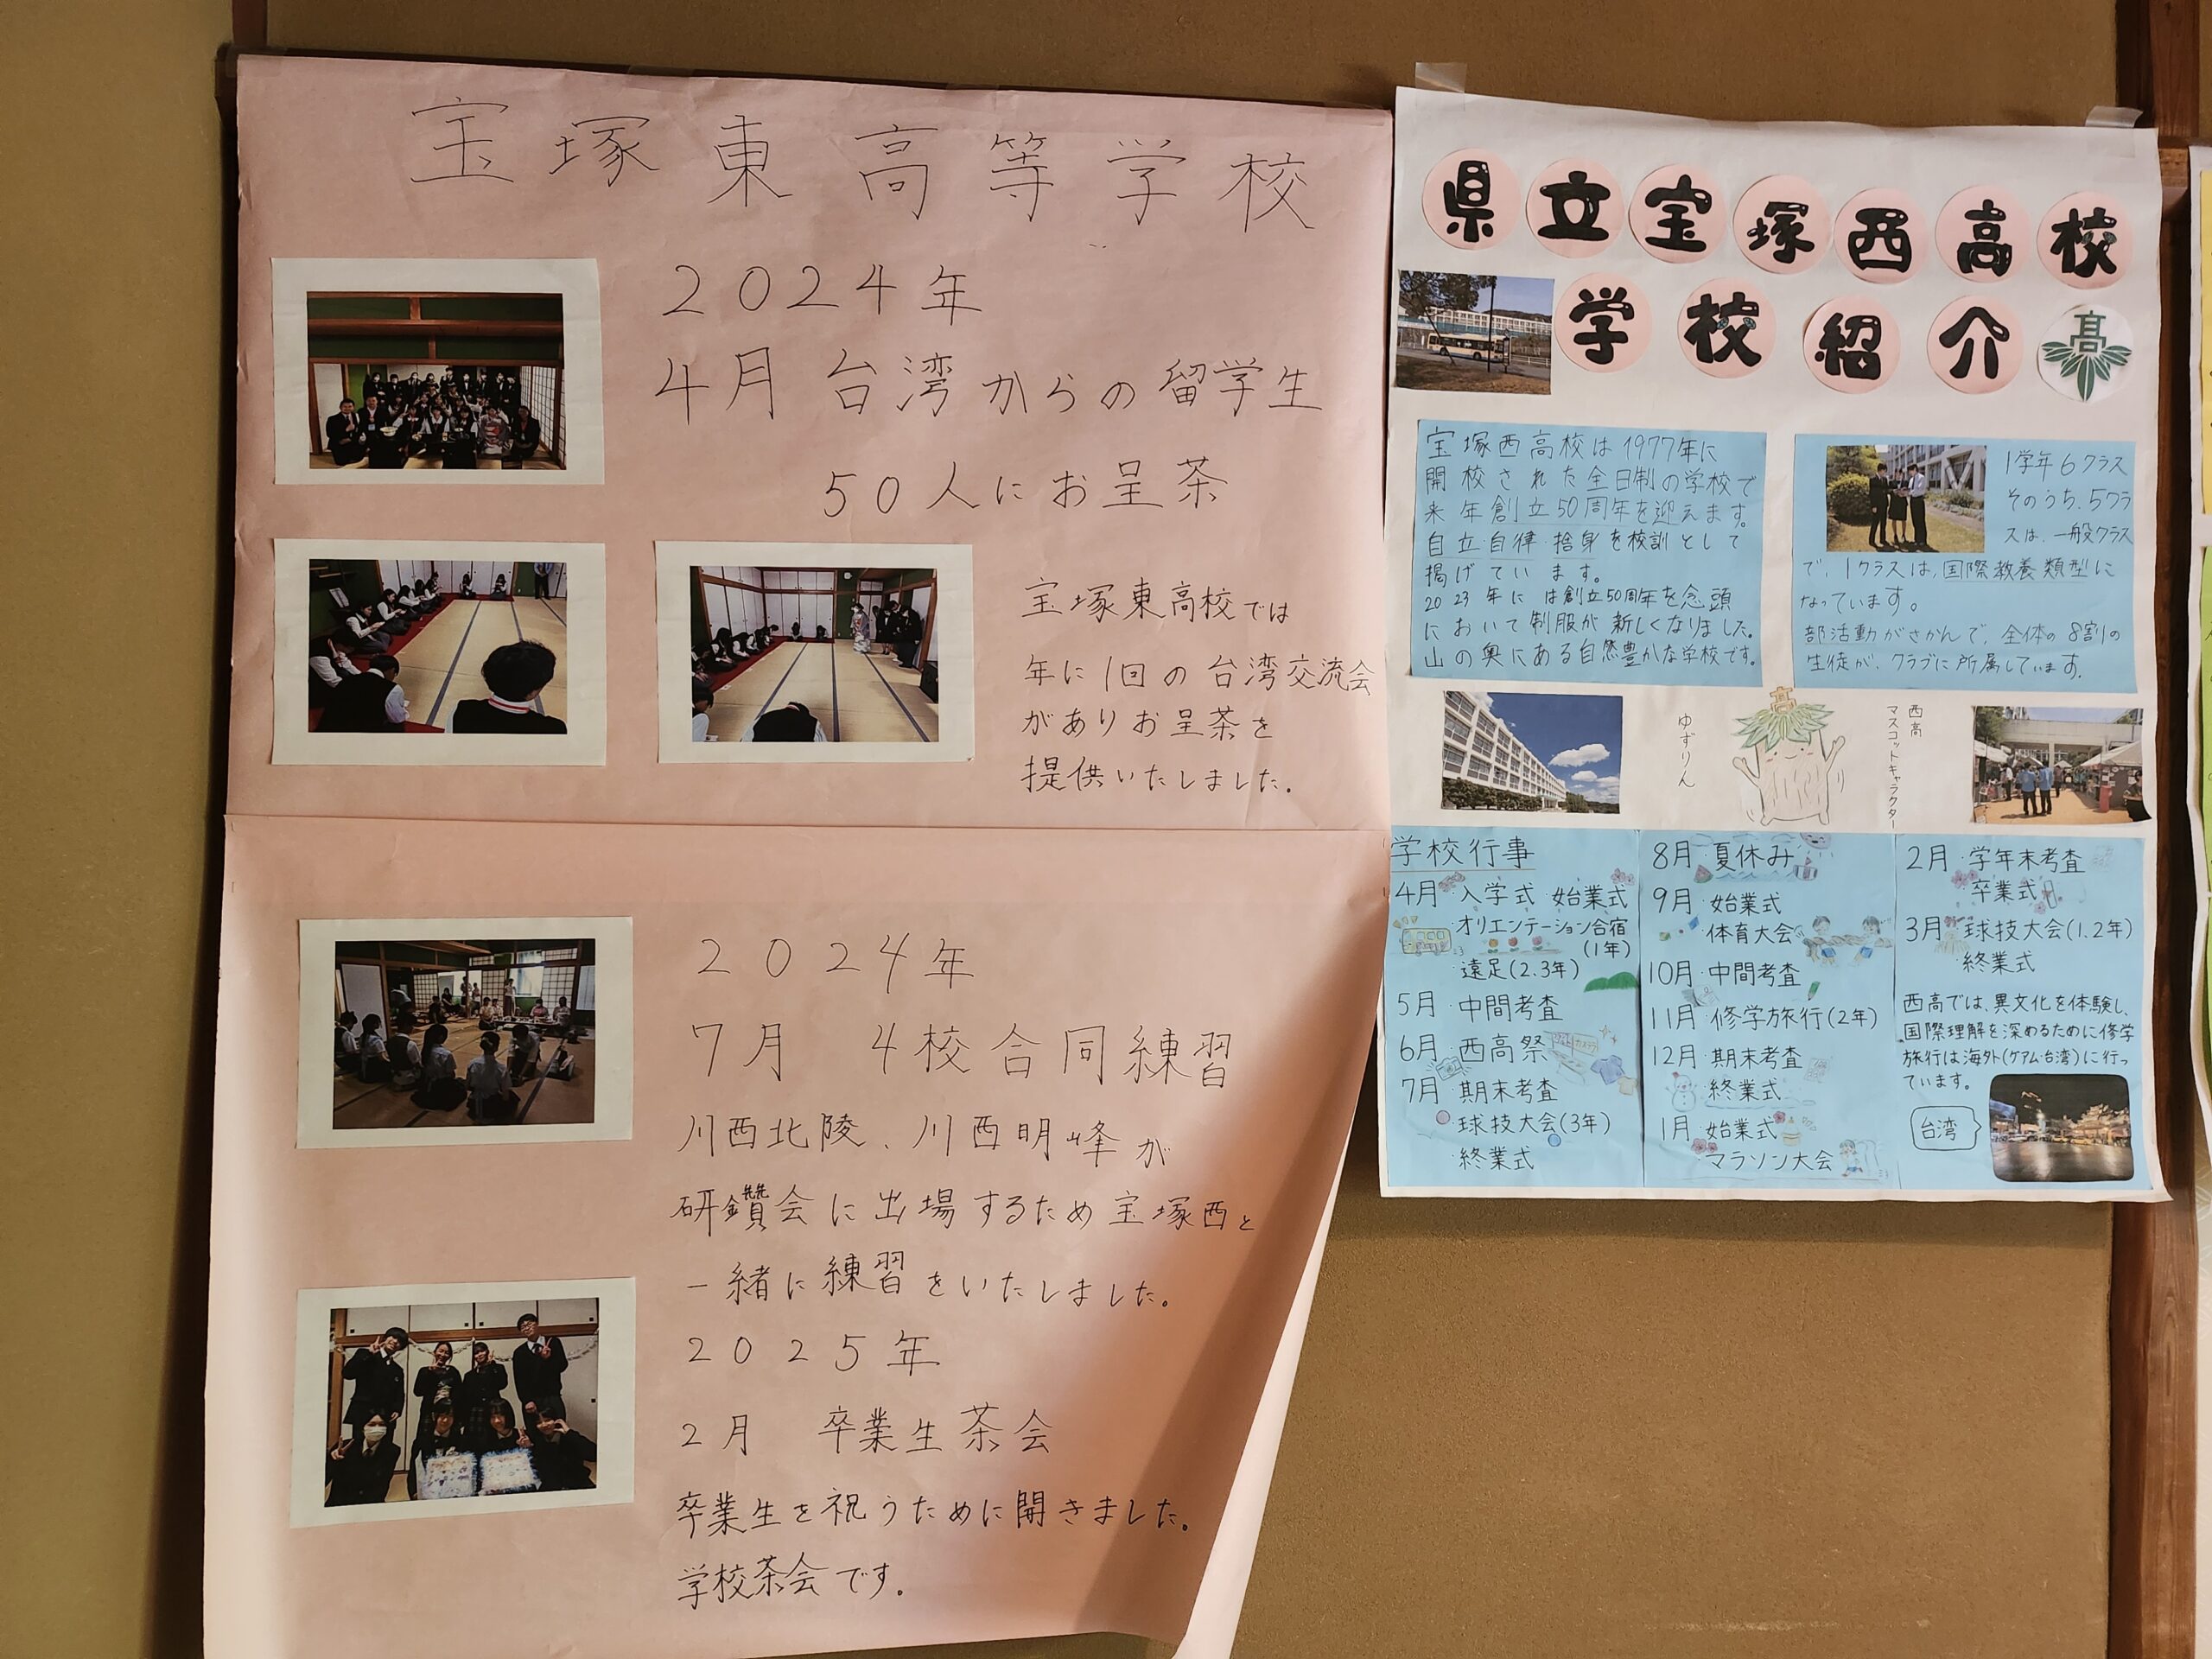 宝塚東高等学校
2024年
4月 台湾からの留学生
50人にお呈茶
宝塚東高校では
年に1回の台湾交流会
がありお呈茶を
提供いたしました。
2024年
7月 4校合同練習
川西北陵、川西明峰が
研鑽会に出場するため宝塚西と
一緒に練習をいたしました。
2025年
2月 卒業生茶会
卒業生を祝うために開きました。
学校茶会です。
県立宝塚西高校
学校紹介
高
宝塚西高校は1977年に
開校された全日制の学校で
来年創立50周年を迎えます。
自立・自律・捨身を校訓として
掲げています。
2023年には創立50周年を念頭
において制服が新しくなりました。
山の奥にある自然豊かな学校です。
1学年6クラス
そのうち、5クラ
スは、一般クラス
で、1クラスは、国際教養類型に
なっています。
部活動がさかんで、全体の8割の
生徒が、クラブに所属しています。
ゆずりん
高
西高
マスコットキャラクター
学校行事
4月・入学式 始業式
・オリエンテーション合宿
(1年)
・遠足(2.3年)
5月・中間考査
6月・西高祭
7月・期末考査
・球技大会(3年)
・終業式
8月・夏休み
9月・始業式
・体育大会
10月・中間考査
11月・修学旅行(2年)
12月・期末考査
・終業式
1月・始業式
・マラソン大会
2月・学年末考査
・卒業式
3月・球技大会(1.2年)
・終業式
西高では、異文化を体験し、
国際理解を深めるために修学
旅行は海外(グアム・台湾)に行っ
ています。
台湾